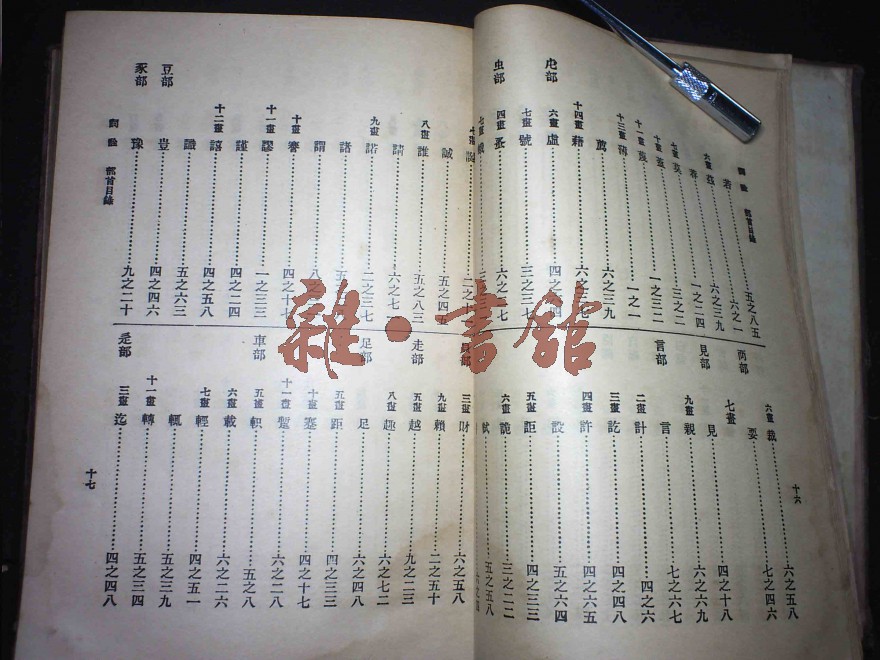 詞詮 部首目錄
若……五之八五
六畫 茲……六之一
六之三九
七畫 莫……一之二四
十畫 蓋……三之二
十一畫 蔑……一之三二
十三畫 薄……一之一
薦……六之三九
十四畫 藉……六之七
虍部 六畫 虛……四之四
七畫 號……三之三七
虫部 四畫 蚤……六之二七
七畫
六畫 裁……六之五八
襾部 要……七之四六
見部 七畫 見……四之十八
九畫 親……六之六九
言部 言……七之六七
二畫 計……四之六
三畫 訖……四之四八
四畫 許……四之六五
設……五之六四
五畫 詎……四之三三
六畫 詭……三之二二
試……五之五八
十六
說……二之十
誠……五之四五
八畫 誰……五之八三
請……六之七一
九畫 諾……二之三七
諸……五
謂……八之
十畫 謇……四之十七
十一畫 謬……一之三三
謹……四之二四
十二畫 譆……四之五八
識……五之六三
豆部 豈……四之四六
豕部 豫……九之二十
詞詮 部首目錄
貝部 三畫 財……六之五八
九畫 賴……二之五十
走部 五畫 越……九之二三
八畫 趣……六之七二
足部 足……六之四八
五畫 距……四之三三
十畫 蹇……四之十七
十一畫 蹔……六之二八
車部 五畫 軹……五之八
六畫 載……六之二六
七畫 輕……四之五一
輒……五之三九
十一畫 轉……五之三四
辵部 三畫 迄……四之四八
十七
雜·書館